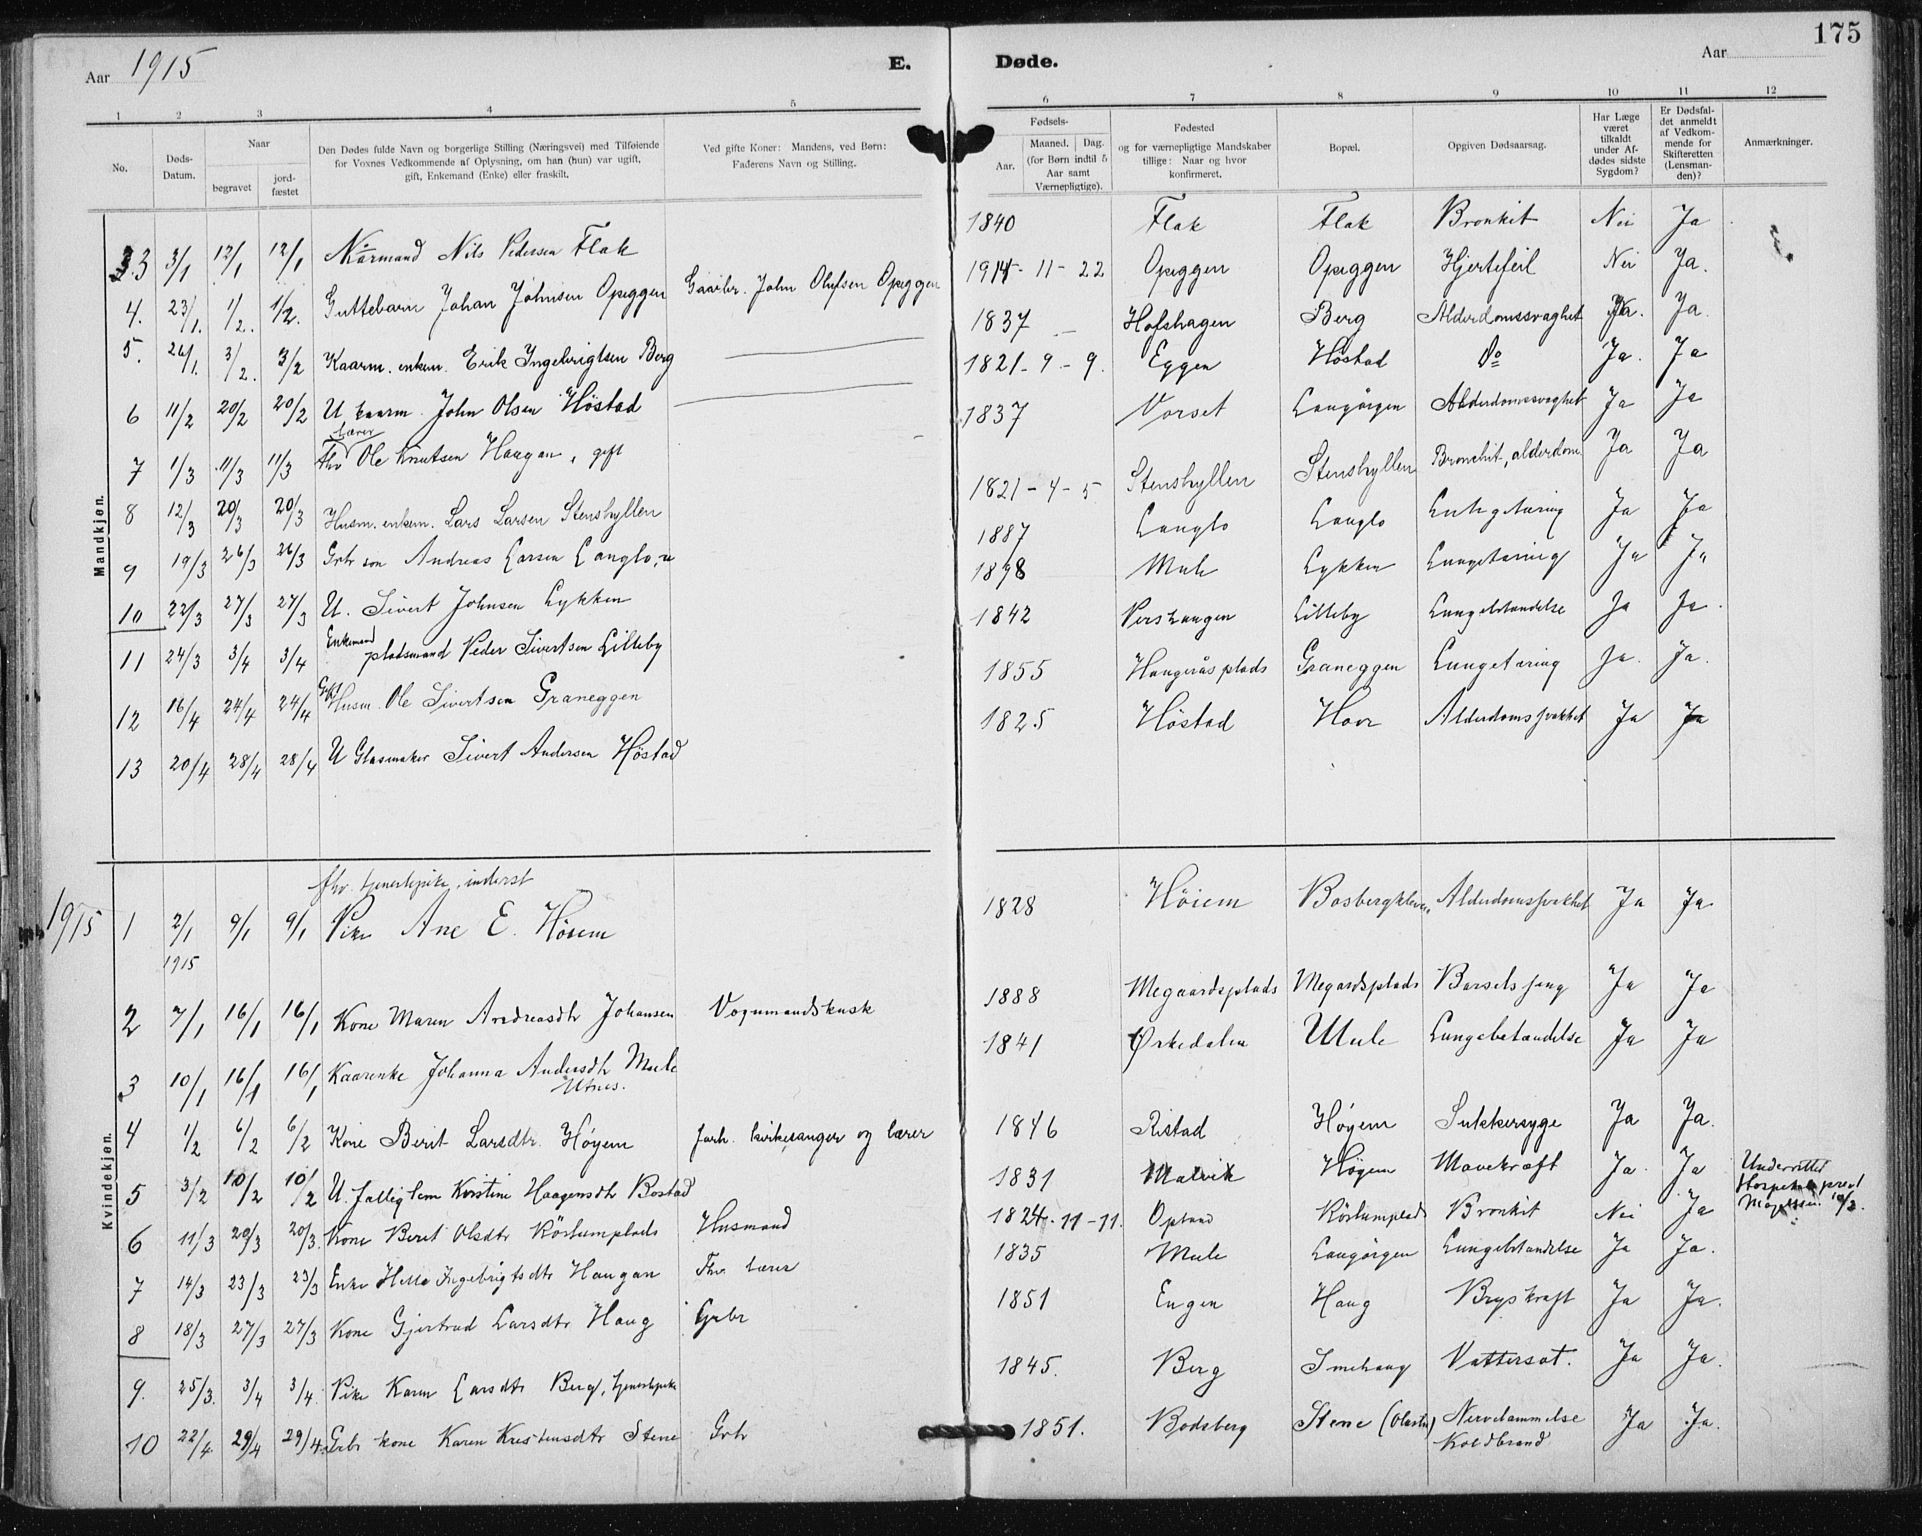 175
Aar 1915 E. Døde. Aar
1 2 3 4 5 6 7 8 9 10 11 12
No. Døds-Datum. Naar begravet jord-fæstet Den Dødes fulde Navn og borgerlige Stilling (Næringsvei) med Tilføiende for Voxnes Vedkommende af Oplysning, om han (hun) var ugift, gift, Enkemand (Enke) eller fraskilt. Ved gifte Koner: Mandens, ved Børn: Faderens Navn og Stilling. Fødsels- Aar. Maaned. Dag. (for Børn indtil 5 Aar samt Værnepligtige). Fødested og for værnepligtige Mandskaber tillige: Naar og hvor konfirmeret. Bopæl. Opgiven Dødsaarsag. Har Læge været tilkaldt under Afdødes sidste Sygdom? Er Dødsfaldet anmeldt af Vedkommende for Skifteretten (Lensmanden)? Anmærkninger.
Mandkjøn.
3 3/1 12/1 12/1 Kårmand Nils Pedersen Flak 1840 Flak Flak Bronkit Nei Ja
4. 23/1. 1/2. 1/2. Guttebarn Johan Johnsen Opeggen Gaarbr. John Olufsen Opeggen 1914-11-22 Opeggen Opeggen Hjertefeil Nei Ja.
5. 26/1. 3/2. 3/2 Kaarm. enkem. Erik Ingebrigtsen Berg 1837 Hofshagen Berg Alderdomssvaghet Ja. Ja.
6 11/2 20/2 20/2 U kaarm. John Olsen Høstad 1821-9-9. Eggen Høstad Do Ja. Ja
7 1/3 11/3 11/3 Fhv lærer Ole Knutsen Haugan, gift 1837 Vorset Langørgen Alderdomssvaghet Ja Ja
8 12/3 20/3 20/3 Husm. enkem. Lars Larsen Stenshyllen 1821-4-5 Stenshyllen Stenshyllen Bronchit, alderdom Ja Ja
9 19/3 26/3 26/3 Grbr søn Andreas Larsen Langlo, u 1887 Langlo Langlo Lungetæring Ja Ja
10 22/3 27/3 27/3 U. Sivert Johnsen Lykken 1898 Mule Lykken Lungetæring Ja Ja
11 24/3 3/4 3/4 Enkemand pladsmand Peder Sivertsen Lilleby 1842 Pershaugen Lilleby Lungebetændelse Ja Ja.
12 16/4 24/4 24/4 Gift Husm. Ole Sivertsen Graneggen 1855 Haugerås plads Graneggen Lungetæring Ja. Ja.
13 20/4 28/4 28/4 U Glasmaker Sivert Andersen Høstad 1825 Høstad Hovr Alderdomssvakhet Ja Ja
Kvindekjøn.
1915 fhv. tjenestepike, inderst
1 2/1 1915 9/1 9/1 Pike Ane E. Høiem 1828 Høiem Bosbergkleven. Alderdomssvakhet Ja Ja
2 7/1 16/1 16/1 Kone Maren Andreasdtr Johansen Vognmandskusk 1888 Megaardsplads Megardsplads Barselsfeng Ja Ja
3 10/1 16/1 16/1 Kaarenke Johanna Andersdtr Mule Utnes. 1841 Ørkedalen Mule Lungebetændelse Ja Ja
4 1/2 6/2 6/2 Kone Berit Larsdtr. Høyem forh. kirkesanger og lærer 1846 Ristad Høyem Sukkersyge Ja Ja.
5 3/2 10/2 10/2 U. fattiglem Kirstine Haagensdtr Bostad 1831 Malvik Høyem Mavekræft Ja. Ja Underrettet Hospitalspræst 10/2.
6 11/3 20/3 20/3. Kone Berit Olsdtr Körlumplads Husmand 1824-11-11. Opland Körlumplads Bronkit Nei Ja
7 14/3 23/3 23/3 Enke Ingebrigtsdtr Haugan Fhv lærer 1835 Mule Langørgen Lungebetændelse Ja Ja.
8 18/3 27/3 27/3 Kone Gjertrud Larsdtr Haug Grbr 1851 Engen Haug Brystkræft Ja Ja.
9. 25/3. 3/4 3/4. Pike Karen Larsdtr Berg, tjenestepike 1845. Berg Smehaug Vattersot. Ja Ja.
10 22/4. 29/4 29/4. Grbr kone Karen Kristensdtr Stene Grbr 1851. Bodsberg Stene Nervelammelse Koldbrand Ja Ja.